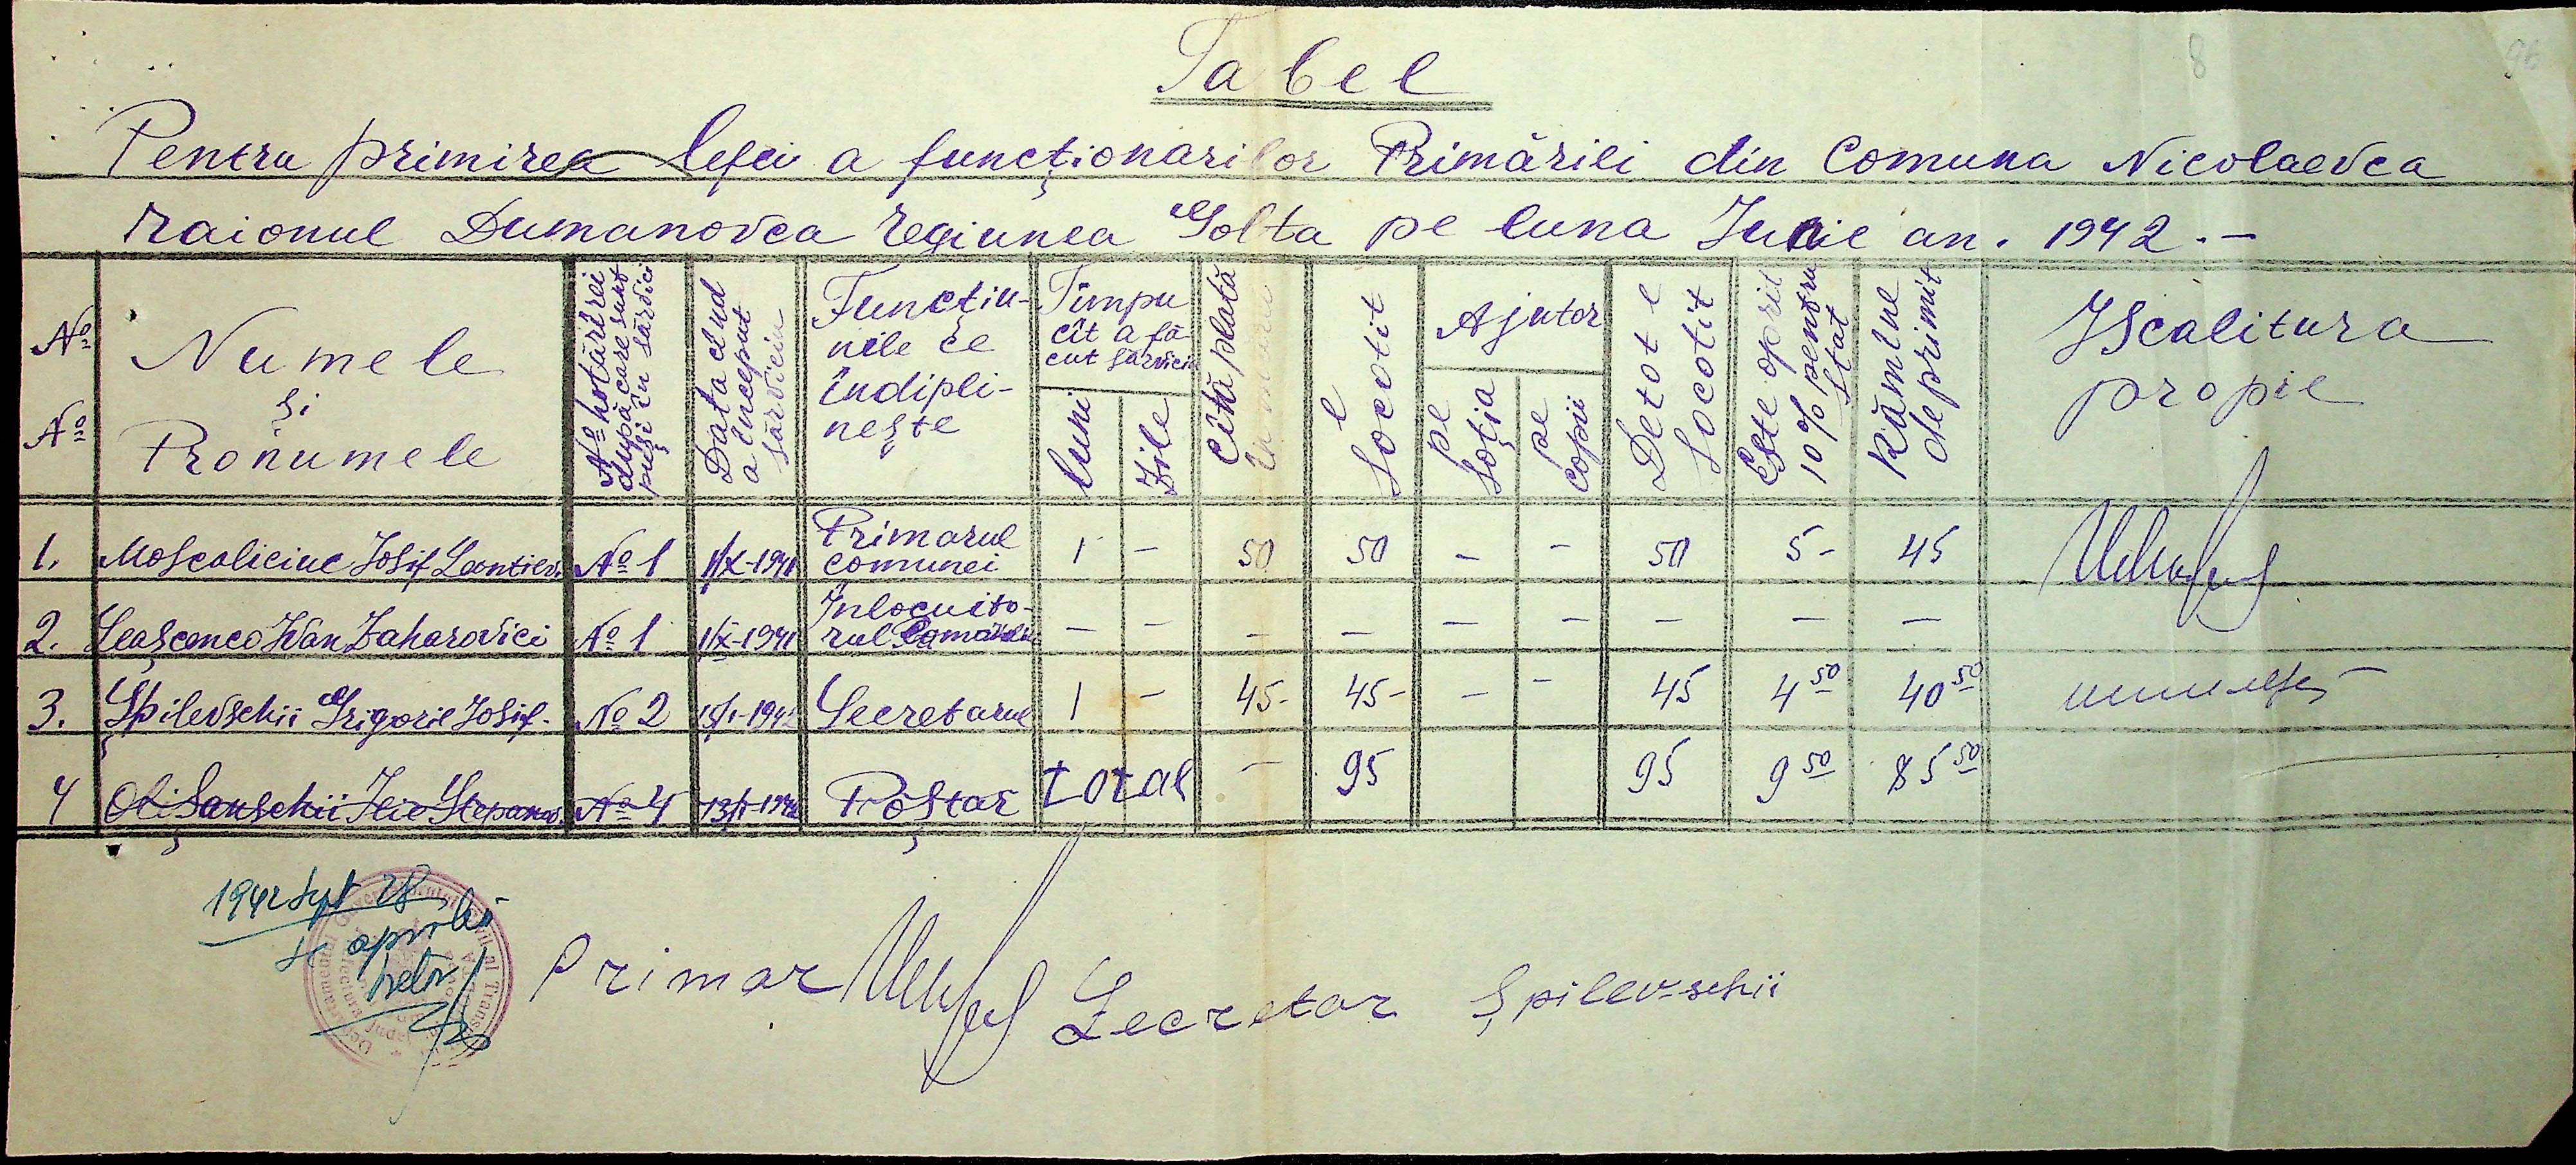 8
96
Tabel
Pentru primirea lefei a funcționarilor Primăriei din Comuna Nicolaevca
raionul Dumanovca regiunea Golta pe luna Iunie an. 1942.-
№ №
Numele și Pronumele
№ hotărîrei după care sunt puși în sărvici
Data cînd a început sărviciu
Funcțiunile ce îndiplinește
Timpu cît a făcut sărvici
luni
Zile
Cîtă plată
E Socotit
Ajutor
pe soția
pe copii
De tot e Socotit
Este oprit 10% pentru stat
Rămîne de primit
Iscalitura propie
1. Moscaliciuc Iosif Leontiev. № 1 1/X-1941 Primarul comunei 1 - 50 50 - - 50 5- 45
2. Leașcenco Ivan Zaharovici № 1 1/X-1941 Înlocuitorul - - - - - - - - -
3. Șpilevschii Grigorie Iosif. № 2 15/I-1942 Secretarul 1 - 45- 45- - - 45 4 50 40 50
4 Olișanschii Ilie Stepanov. № 4 Poștar total - 95 95 9 50 85 50
1942 Sept 28
se aprobă
Pretor
Primar
Secretar Șpilevschii